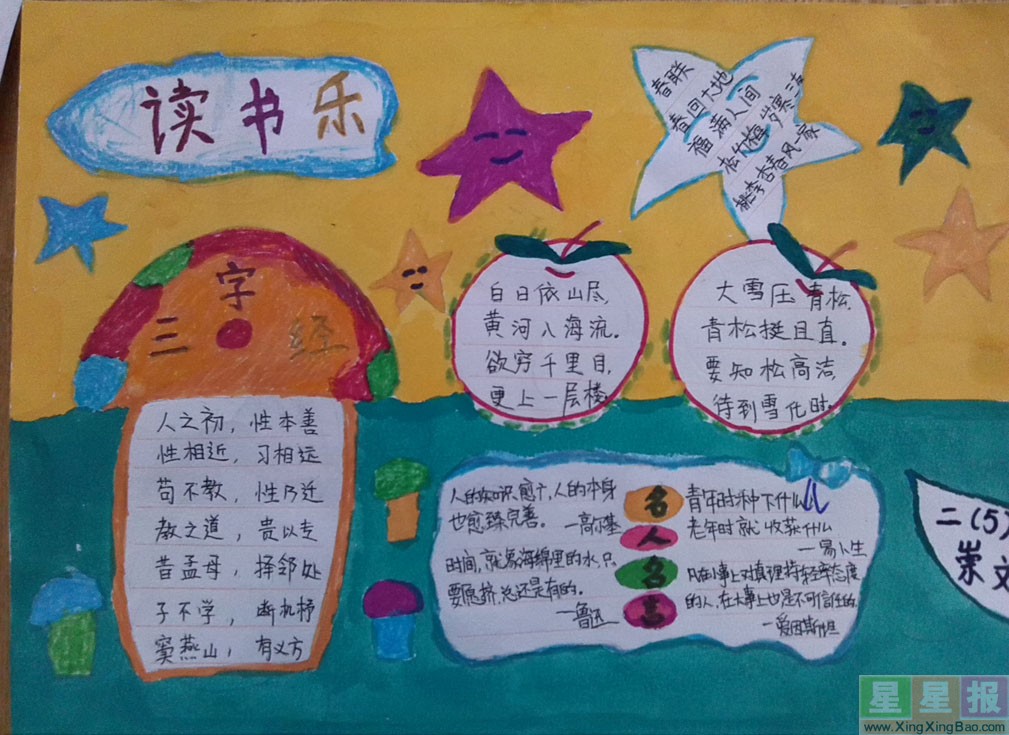 读书乐
春联
春回大地
福满人间
松竹梅岁寒三
桃李杏春风家
三字经
人之初，性本善
性相近，习相远
苟不教，性乃迁
教之道，贵以专
昔孟母，择邻处
子不学，断机杼
窦燕山，有义方
白日依山尽，
黄河入海流。
欲穷千里目，
更上一层楼
大雪压青松，
青松挺且直。
要知松高洁，
待到雪化时。
名人名言
人的知识愈广，人的本身
也愈臻完善。 —高尔基
时间，就象海绵里的水，只
要愿挤，总还是有的。
—鲁迅
青年时种下什么
老年时就收获什么
—易卜生
凡在小事上对真理持轻率态度
的人，在大事上也是不可信任的
—爱因斯坦
二(5)
崇文
星星报
www.XingXingBao.com